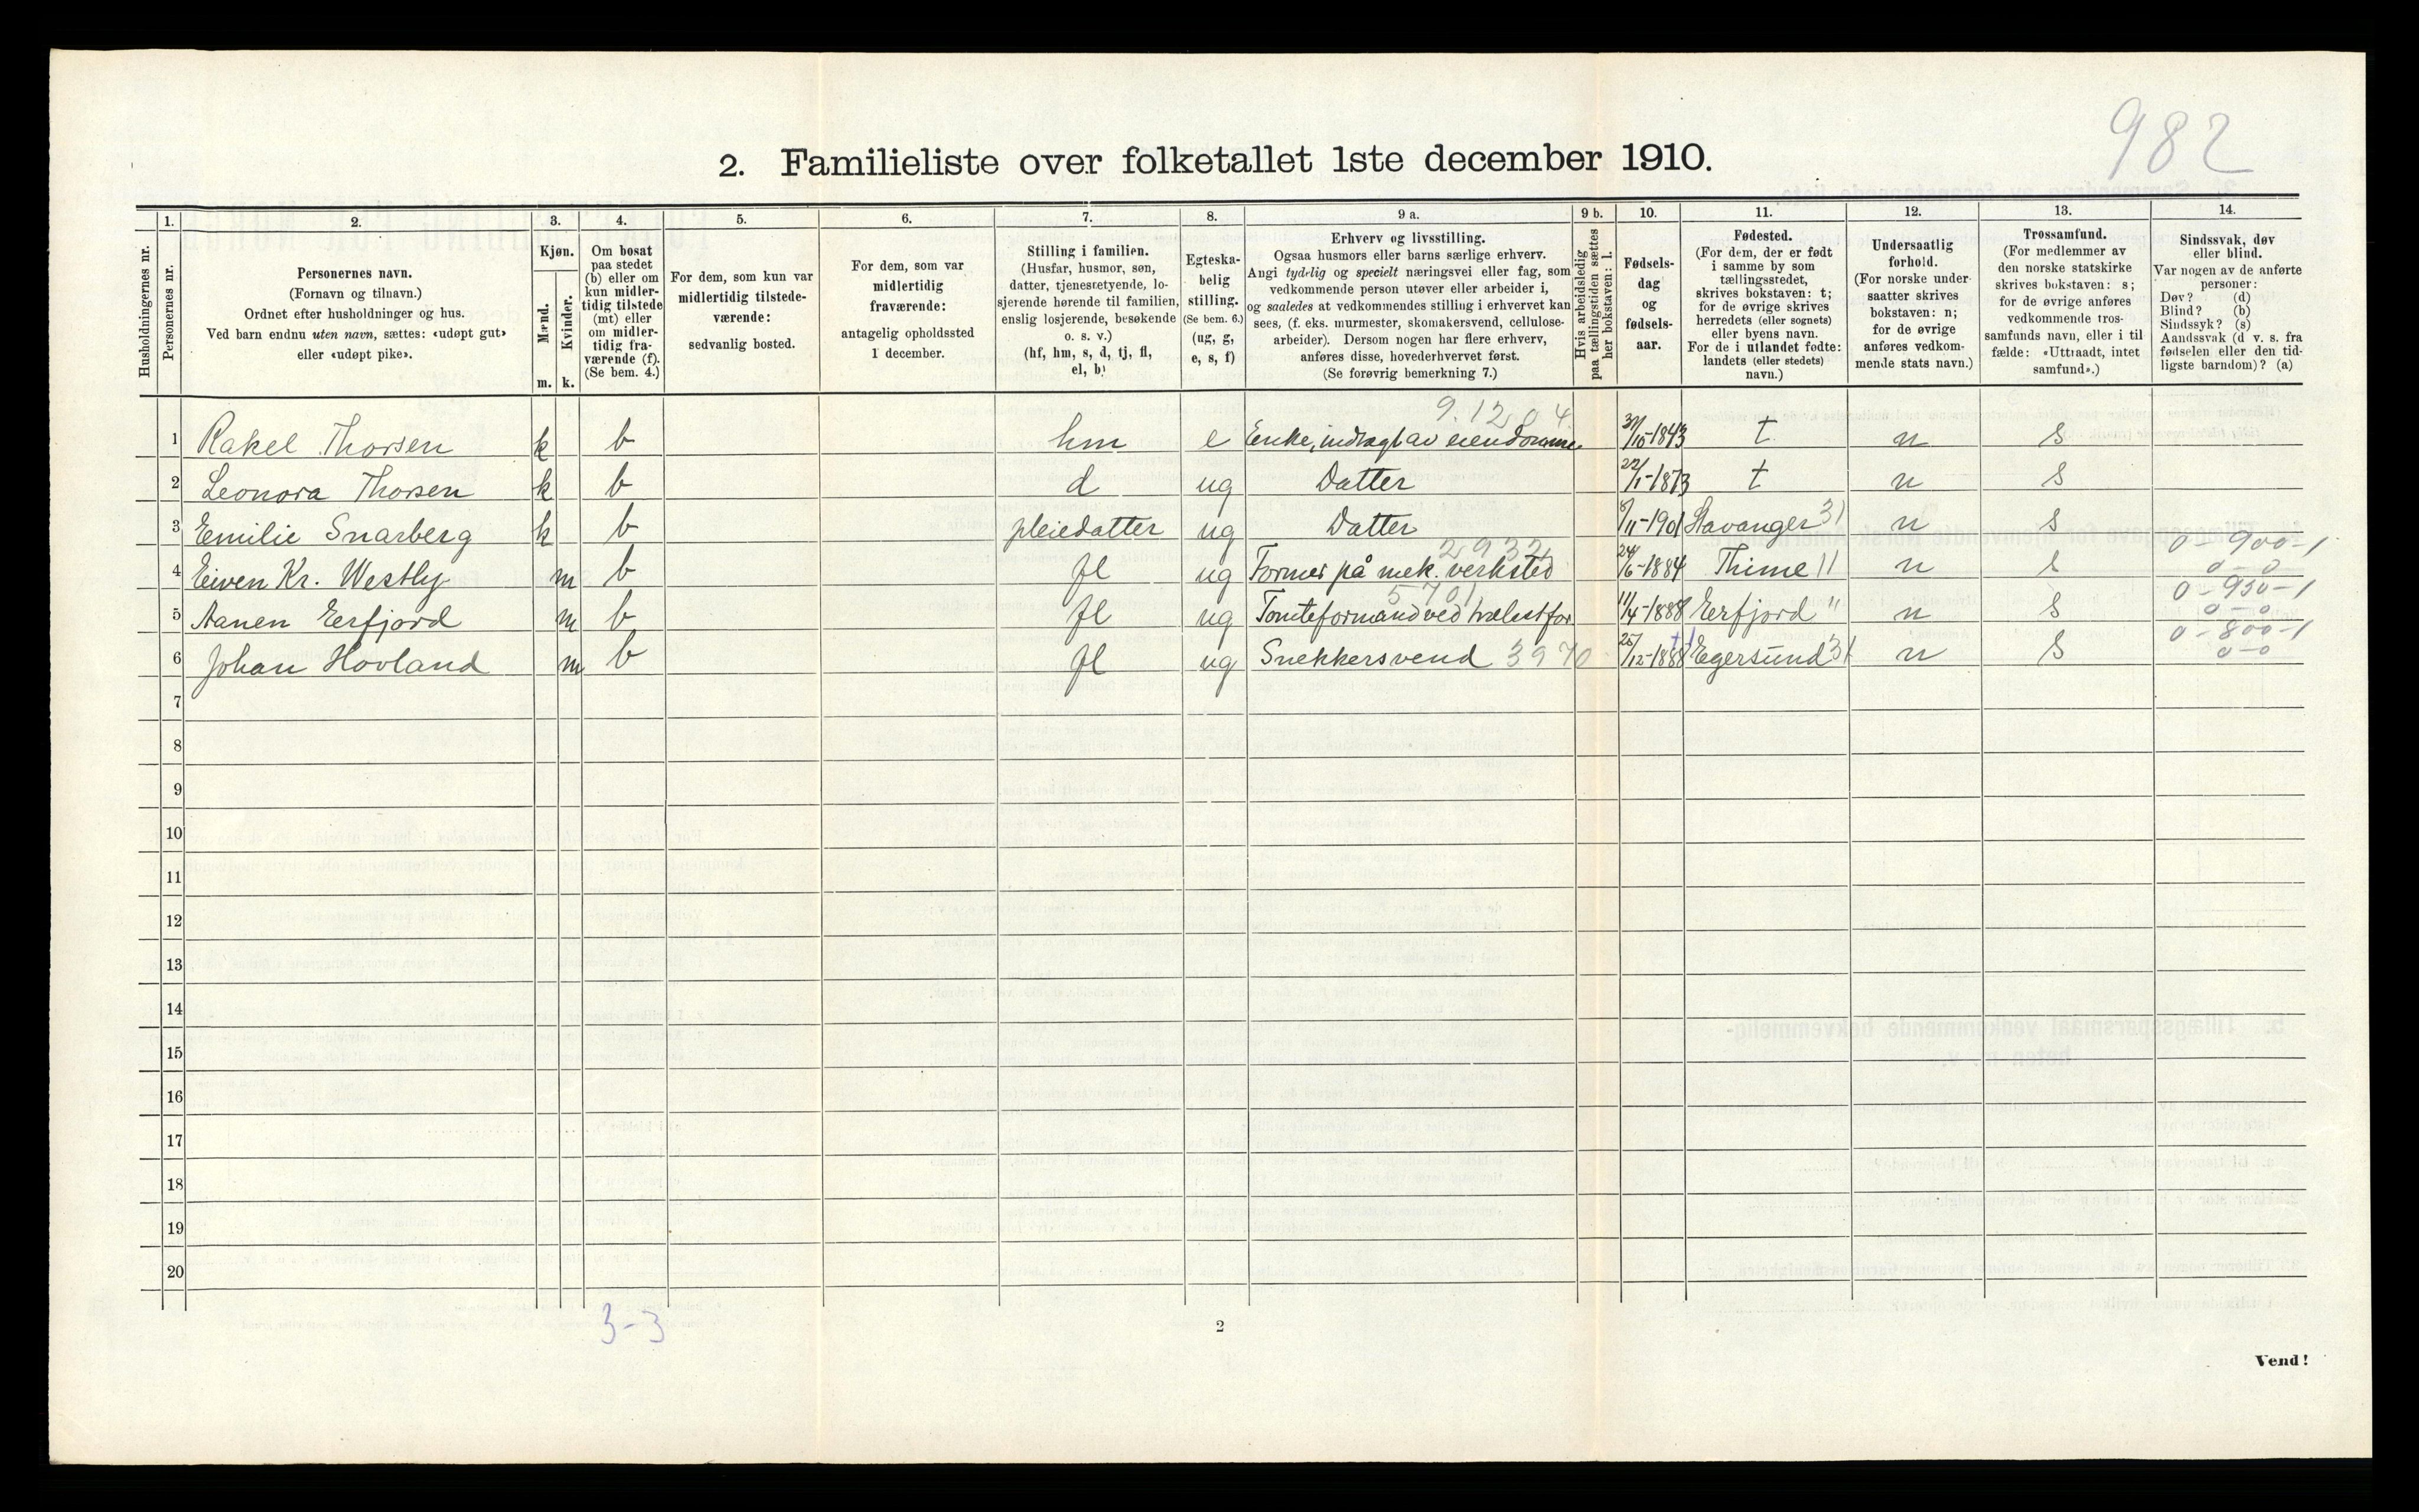 982
2. Familieliste over folketallet 1ste december 1910.
Husholdningernes nr.
1.
Personernes nr.
2.
Personernes navn.
(Fornavn og tilnavn.)
Ordnet efter husholdninger og hus.
Ved barn endnu uten navn, sættes: «udøpt gut»
eller «udøpt pike».
3.
Kjøn.
Mænd.
Kvinder.
m. k.
4.
Om bosat
paa stedet
(b) eller om
kun midler-
tidig tilstede
(mt) eller
om midler-
tidig fra-
værende (f).
(Se bem. 4.)
5.
For dem, som kun var
midlertidig tilstede-
værende:
sedvanlig bosted.
6.
For dem, som var
midlertidig
fraværende:
antagelig opholdssted
1 december.
7.
Stilling i familien.
(Husfar, husmor, søn,
datter, tjenestetyende, lo-
sjerende hørende til familien,
enslig losjerende, besøkende
o. s. v.)
(hf, hm, s, d, tj, fl,
el, b)
8.
Egteska-
belig
stilling.
(Se bem. 6.)
(ug, g,
e, s, f)
9 a.
Erhverv og livsstilling.
Ogsaa husmors eller barns særlige erhverv.
Angi tydelig og specielt næringsvei eller fag, som
vedkommende person utøver eller arbeider i,
og saaledes at vedkommendes stilling i erhvervet kan
sees, (f. eks. murmester, skomakersvend, cellulose-
arbeider). Dersom nogen har flere erhverv,
anføres disse, hovederhvervet først.
(Se forøvrig bemerkning 7.)
9 b.
Hvis arbeidsledig
paa tællingstiden sættes
her bokstaven: l.
10.
Fødsels-
dag
og
fødsels-
aar.
11.
Fødested.
(For dem, der er født
i samme by som
tællingsstedet,
skrives bokstaven: t;
for de øvrige skrives
herredets (eller sognets)
eller byens navn.
For de i utlandet fødte:
landets (eller stedets)
navn.)
12.
Undersaatlig
forhold.
(For norske under-
saatter skrives
bokstaven: n;
for de øvrige
anføres vedkom-
mende stats navn.)
13.
Trossamfund.
(For medlemmer av
den norske statskirke
skrives bokstaven: s;
for de øvrige anføres
vedkommende tros-
samfunds navn, eller i til
fælde: «Uttraadt, intet
samfund».)
14.
Sindssvak, døv
eller blind.
Var nogen av de anførte
personer:
Døv? (d)
Blind? (b)
Sindssyk? (s)
Aandssvak (d v. s. fra
fødselen eller den tid-
ligste barndom)? (a)
1 Rakel Thorsen k b hm e Enke, indtægt av eiendomme 31/10-1843 t n s
2 Leonora Thorsen k b d ug Datter 22/1-1873 t n s
3 Emilie Snarberg k b pleiedatter ug Datter 8/11-1901 Stavanger 31 n s
2932 0-900-1
4 Eiven Kr. Westly m b fl ug Former på mek. verksted 24/6-1884 Thime 11 n s 0-0
5701 0-950-1
5 Aanen Eerfjord m b fl ug Tomteformand ved trælastfor 11/4-1888 Eerfjord " n s 0-0
0-800-1
6 Johan Hovland m b fl ug Snekkersvend 3970 25/12-1888 Egersund 31 n s 0-0
7
8
9
10
11
12
13
14
15
16
17
18
19
20
3-3
2
Vend!